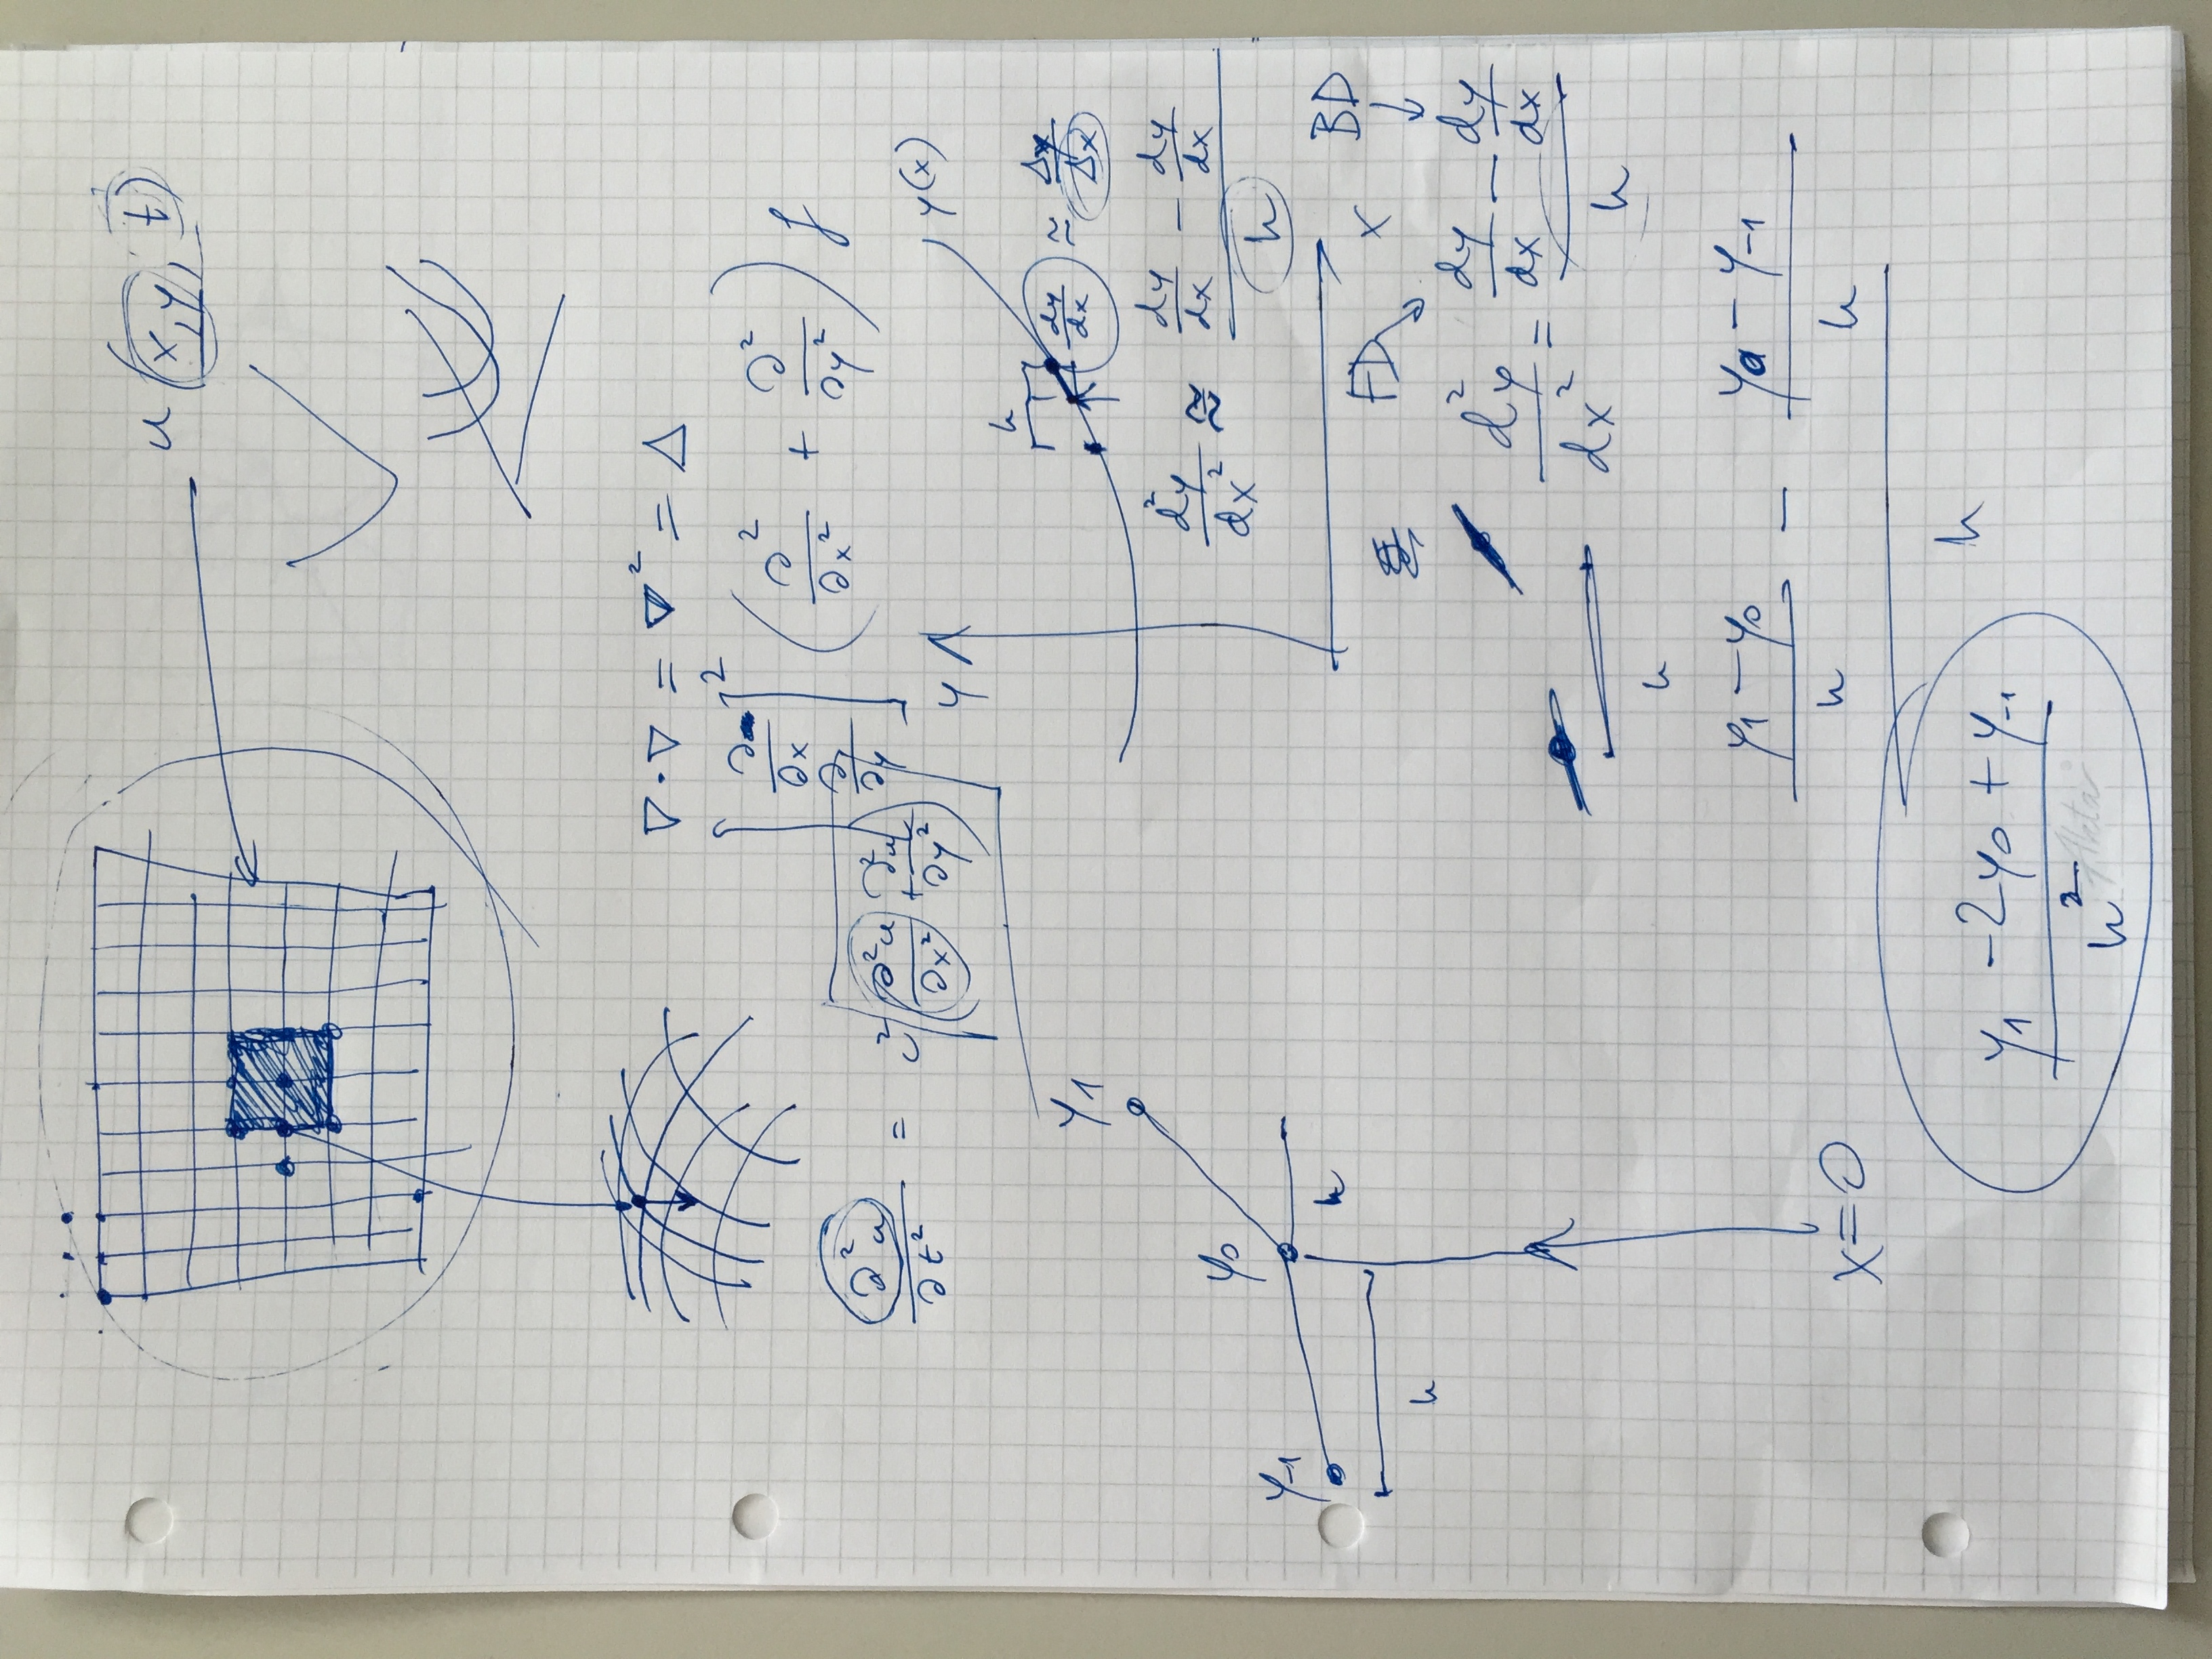 u (x, y, t)
∇ · ∇ = ∇² = Δ
[∂/∂x ∂/∂y]² (∂²/∂x² + ∂²/∂y²) f
∂²u/∂t² = c² [∂²u/∂x² + ∂²u/∂y²]
y
y(x)
h
dy/dx ≅ Δy/Δx
y₁
d²y/dx² ≈ (dy/dx − dy/dx)/h
y₀
y₋₁
h
h
x
FD
BD
d²y/dx² = (dy/dx − dy/dx)/h
h
((y₁ − y₀)/h − (y₀ − y₋₁)/h)/h
x=0
(y₁ − 2y₀ + y₋₁)/h²